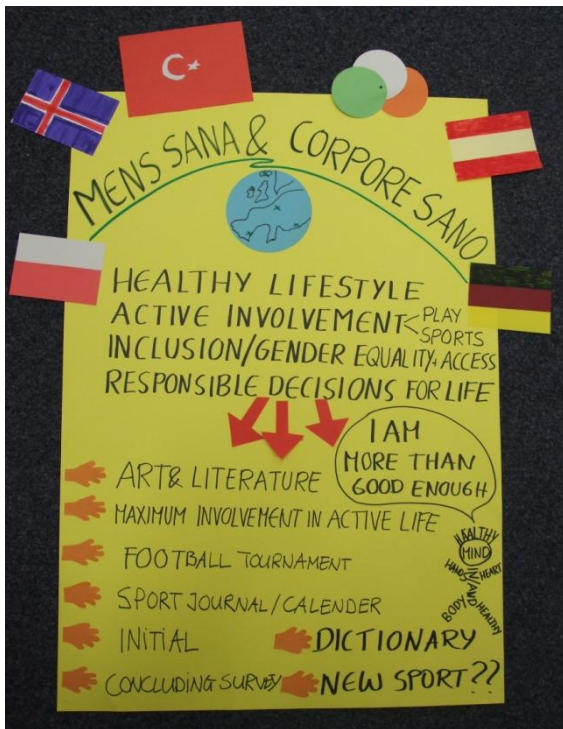 MENS SANA & CORPORE SANO
HEALTHY LIFESTYLE
ACTIVE INVOLVEMENT < PLAY
SPORTS
INCLUSION/GENDER EQUALITY + ACCESS
RESPONSIBLE DECISIONS FOR LIFE
I AM
MORE THAN
GOOD ENOUGH
ART & LITERATURE
MAXIMUM INVOLVEMENT IN ACTIVE LIFE
FOOTBALL TOURNAMENT
SPORT JOURNAL/CALENDER
INITIAL
DICTIONARY
CONCLUDING SURVEY
NEW SPORT??
HEALTHY
MIND
HANDS
HEART
IN/AND
BODY
HEALTHY